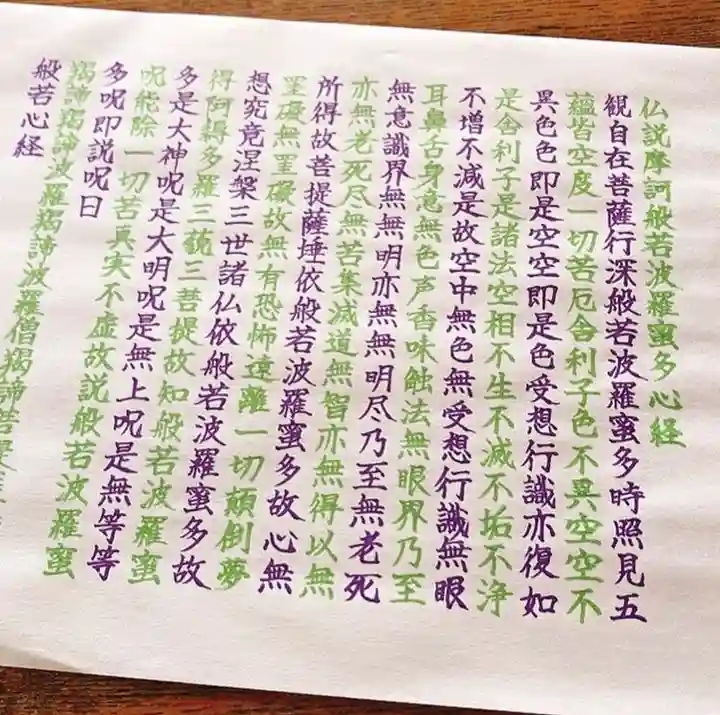 仏説摩訶般若波羅蜜多心経
観自在菩薩行深般若波羅蜜多時照見五
蘊皆空度一切苦厄舎利子色不異空空不
異色色即是空空即是色受想行識亦復如
是舎利子是諸法空相不生不滅不垢不浄
不増不減是故空中無色無受想行識無眼
耳鼻舌身意無色声香味触法無眼界乃至
無意識界無無明亦無無明尽乃至無老死
亦無老死尽無苦集滅道無智亦無得以無
所得故菩提薩埵依般若波羅蜜多故心無
罣礙無罣礙故無有恐怖遠離一切顛倒夢
想究竟涅槃三世諸仏依般若波羅蜜多故
得阿耨多羅三藐三菩提故知般若波羅蜜
多是大神呪是大明呪是無上呪是無等等
呪能除一切苦真実不虚故説般若波羅蜜
多呪即説呪曰
羯諦羯諦波羅羯諦波羅僧羯諦菩
般若心経